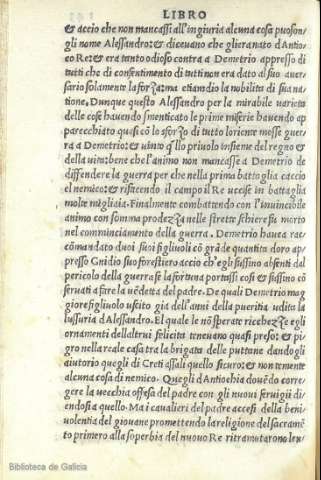 LIBRO
& accio che non mancassi all'ingiuria alcuna cosa puoson
gli nome Alessandro: & diceuano che gliera nato d'Antio
co Re: & era tanto odioso contra a Demetrio appresso di
tutti che di consentimento di tutti non era dato al suo auer
sario solamente la forza: ma etiandio la nobilita di sua na
tione. Dunque questo Alessandro per la mirabile uarieta
delle cose hauendo smenticato le prime miserie hauendo ap
parecchiato quasi cō lo sforzo di tutto loriente messe guer
ra a Demetrio: & uinto q̄llo priuolo insieme del regno &
della uita: bene che l'animo non mancasse a Demetrio de
diffendere la guerra per che nella prima battaglia caccio
el nemico: & rifacendo il campo il Re uccise in battaglia
molte migliaia. Finalmente combattendo con l'inuincibile
animo con somma prodezza nelle strette schiere fu morto
nel cominciamento della guerra. Demetrio hauea rac
cōmandato duoi suoi figliuoli cō grāde quantita doro ap
presso Gnidio suo forestiero accio ch'egli fussino absenti dal
pericolo della guerra se la fortuna portassi cosi & fussino cō
seruati a fare la uēdetta del padre. De quali Demetrio mag
giore figliuolo uscito gia dell'anni della pueritia udita la
lussuria d'Alessandro. El quale le nō sperate ricchezze e gli
ornamenti dellaltrui felicita teneuano quasi preso: & pi
gro nella reale casa tra la brigata delle puttane dandogli
aiutorio quegli di Creti assali quello sicuro: & non temente
alcuna cosa di nemico. Quegli d'Antiochia douēdo corre
gere la uecchia offesa del padre con gli nuoui seruigii di
endosi a quello. Ma i caualieri del padre accesi della beni
uolentia del giouane promettendo la religione del sacramē
to primero alla soperbia del nuouo Re ritramutarono len
Biblioteca de Galicia